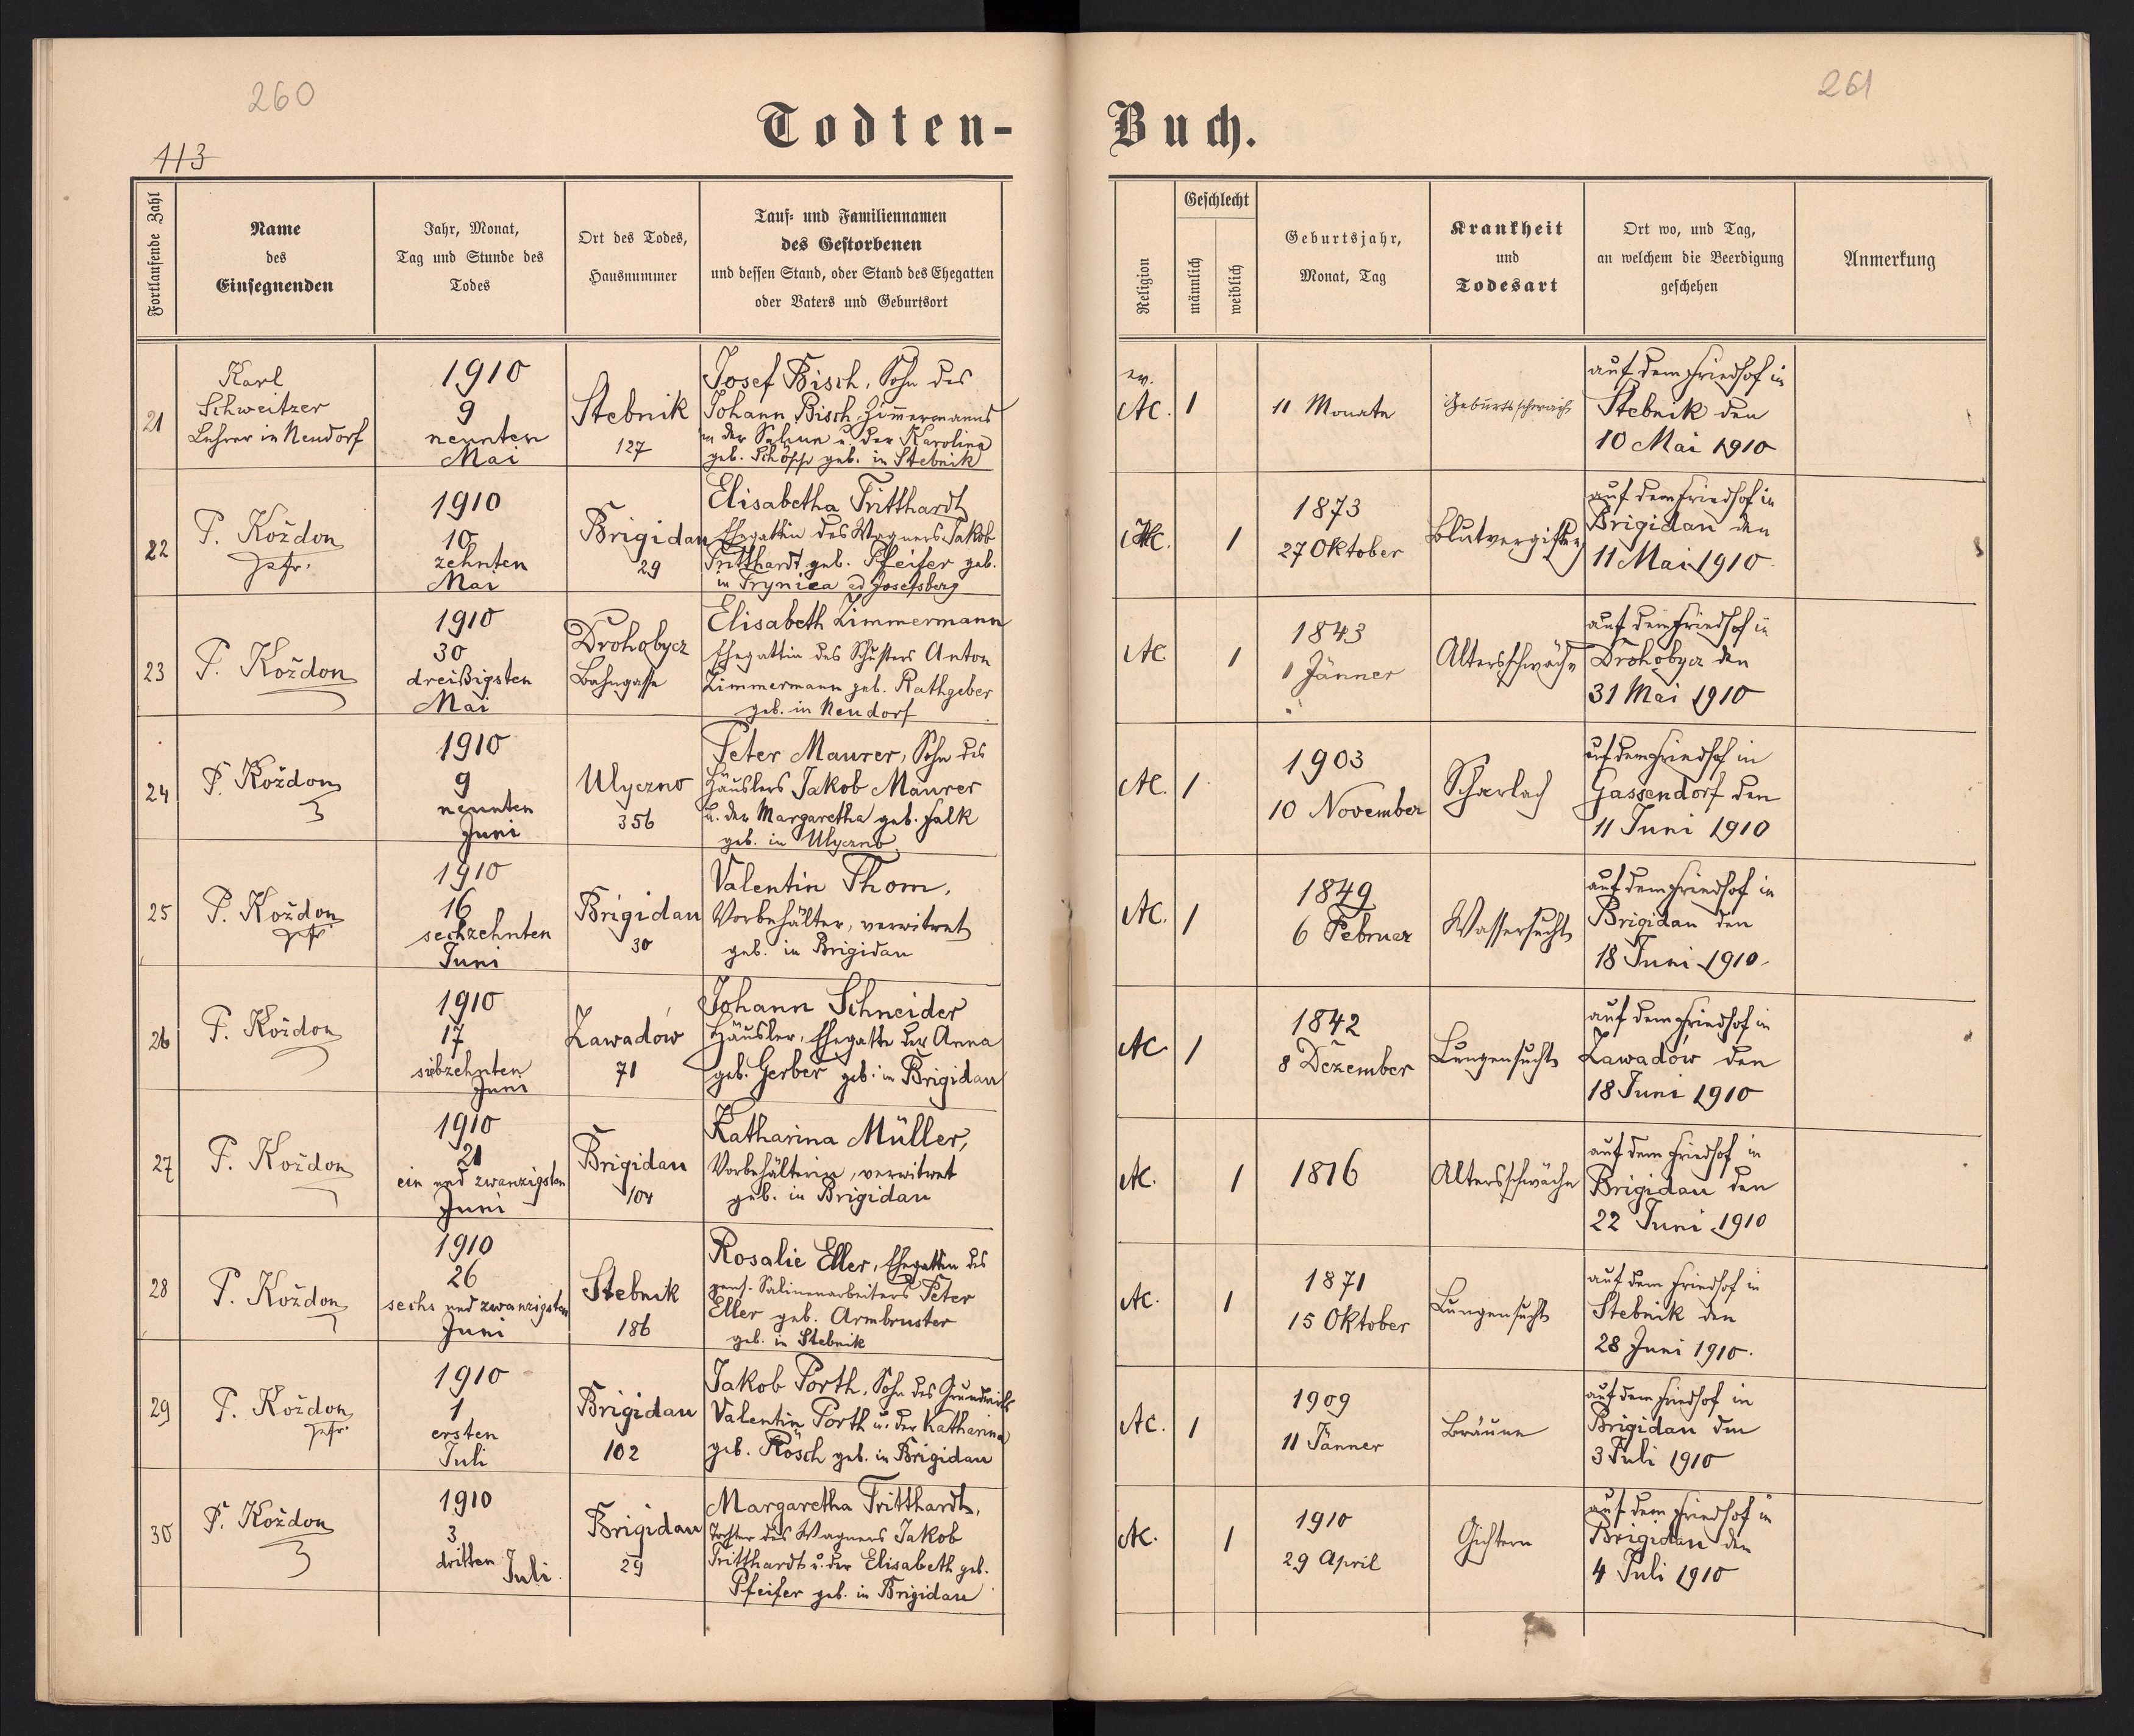 260
261
Todten-Buch.
113
Fortlaufende Zahl
Name
des
Einsegnenden
Jahr, Monat,
Tag und Stunde des
Todes
Ort des Todes,
Hausnummer
Tauf- und Familiennamen
des Gestorbenen
und dessen Stand, oder Stand des Ehegatten
oder Vaters und Geburtsort
Religion
Geschlecht
männlich
weiblich
Geburtsjahr,
Monat, Tag
Krankheit
und
Todesart
Ort wo, und Tag,
an welchem die Beerdigung
geschehen
Anmerkung
21
Karl
Schweitzer
Lehrer in Neudorf
1910
9
neunten
Mai
Stebnik
127
Josef Bisch, Sohn des
Johann Bisch, Zimmermanns
in der Saline u. der Karolina
geb. Schöpp geb. in Stebnik
ev.
AC.
1
11 Monate
Geburtsschwach
auf dem Friedhof in
Stebnik den
10 Mai 1910
22
P. Kożdon
Pfr.
1910
10
zehnten
Mai
Brigidau
29
Elisabetha Tritthardt
Ehegattin des Wagners Jakob
Tritthardt geb. Pfeifer geb.
in Trynica ad Josefsberg
AC.
1
1873
27 Oktober
Blutvergiftung
auf dem Friedhof in
Brigidau den
11 Mai 1910
23
P. Kożdon
1910
30
dreißigsten
Mai
Drohobycz
Bahngasse
Elisabeth Zimmermann
Ehegattin des Schusters Anton
Zimmermann geb. Rathgeber
geb. in Neudorf
AC
1
1843
1 Jänner
Altersschwäche
auf dem Friedhof in
Drohobycz den
31 Mai 1910
24
P. Kożdon
1910
9
neunten
Juni
Ulyczno
356
Peter Maurer, Sohn des
Häuslers Jakob Maurer
u. der Margaretha geb. Falk
geb. in Ulyczno
AC.
1
1903
10 November
Scharlach
auf dem Friedhof in
Gassendorf den
11 Juni 1910
25
P. Kożdon
Pfr.
1910
16
sechzehnten
Juni
Brigidau
30
Valentin Thom,
Vorbehälter, verwitwet
geb. in Brigidau
AC.
1
1849
6 Februar
Wassersucht
auf dem Friedhof in
Brigidau den
18 Juni 1910
26
P. Kożdon
1910
17
siebzehnten
Juni
Zawadów
71
Johann Schneider
Häusler, Ehegatte der Anna
geb. Gerber geb. in Brigidau
AC
1
1842
8 Dezember
Lungensucht
auf dem Friedhof in
Zawadów den
18 Juni 1910
27
P. Kożdon
1910
21
ein und zwanzigsten
Juni
Brigidau
104
Katharina Müller,
Vorbehälterin, verwitwet
geb. in Brigidau
AC.
1
1816
Altersschwäche
auf dem Friedhof in
Brigidau den
22 Juni 1910
28
P. Kożdon
1910
26
sechs und zwanzigsten
Juni
Stebnik
186
Rosalie Eller, Ehegattin des
pens. Salinenarbeiters Peter
Eller geb. Armbruster
geb. in Stebnik
AC.
1
1871
15 Oktober
Lungensucht
auf dem Friedhof in
Stebnik den
28 Juni 1910.
29
P. Kożdon
Pfr.
1910
1
ersten
Juli
Brigidau
102
Jakob Porth, Sohn des Grundwirts
Valentin Porth u. der Katharina
geb. Rösch geb. in Brigidau
AC.
1
1909
11 Jänner
Bräune
auf dem Friedhof in
Brigidau den
3 Juli 1910
30
P. Kożdon
1910
3
dritten Juli
Brigidau
29
Margaretha Tritthardt,
Tochter des Wagners Jakob
Tritthardt u. der Elisabeth geb.
Pfeifer geb. in Brigidau
AC.
1
1910
29 April
Gichtern
auf dem Friedhof in
Brigidau den
4 Juli 1910